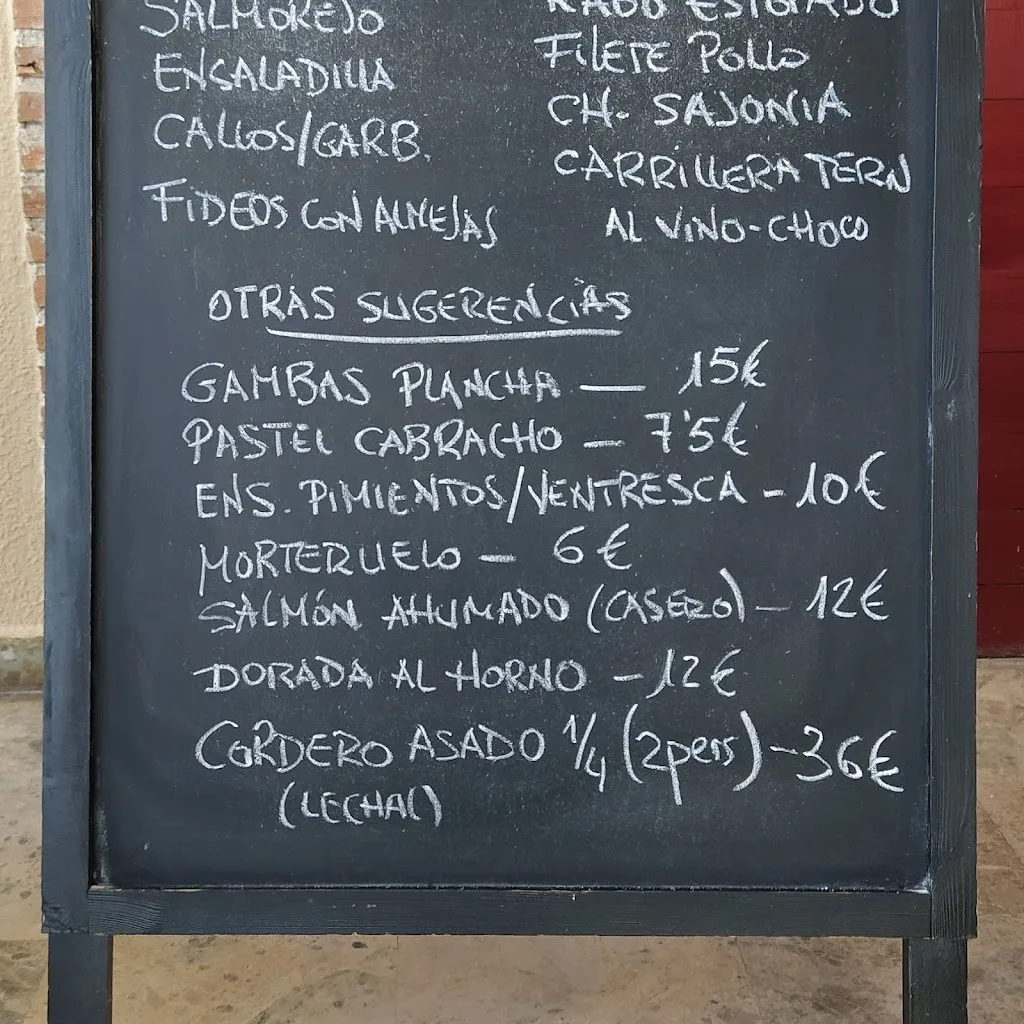 SALMOREJO
ENSALADILLA
CALLOS/GARB.
FIDEOS CON ALMEJAS
RABO ESTOFADO
FILETE POLLO
CH. SAJONIA
CARRILLERA TERN
AL VINO-CHOCO
OTRAS SUGERENCIAS
GAMBAS PLANCHA — 15€
PASTEL CABRACHO — 7'5€
ENS. PIMIENTOS/VENTRESCA - 10€
MORTERUELO — 6€
SALMÓN AHUMADO (CASERO) — 12€
DORADA AL HORNO - 12€
CORDERO ASADO 1/4 (2pers) - 36€
(LECHAL)